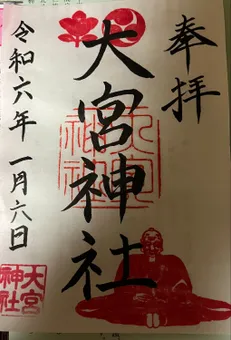 奉拝
大宮神社
令和六年一月六日
大宮神社
大宮
神社